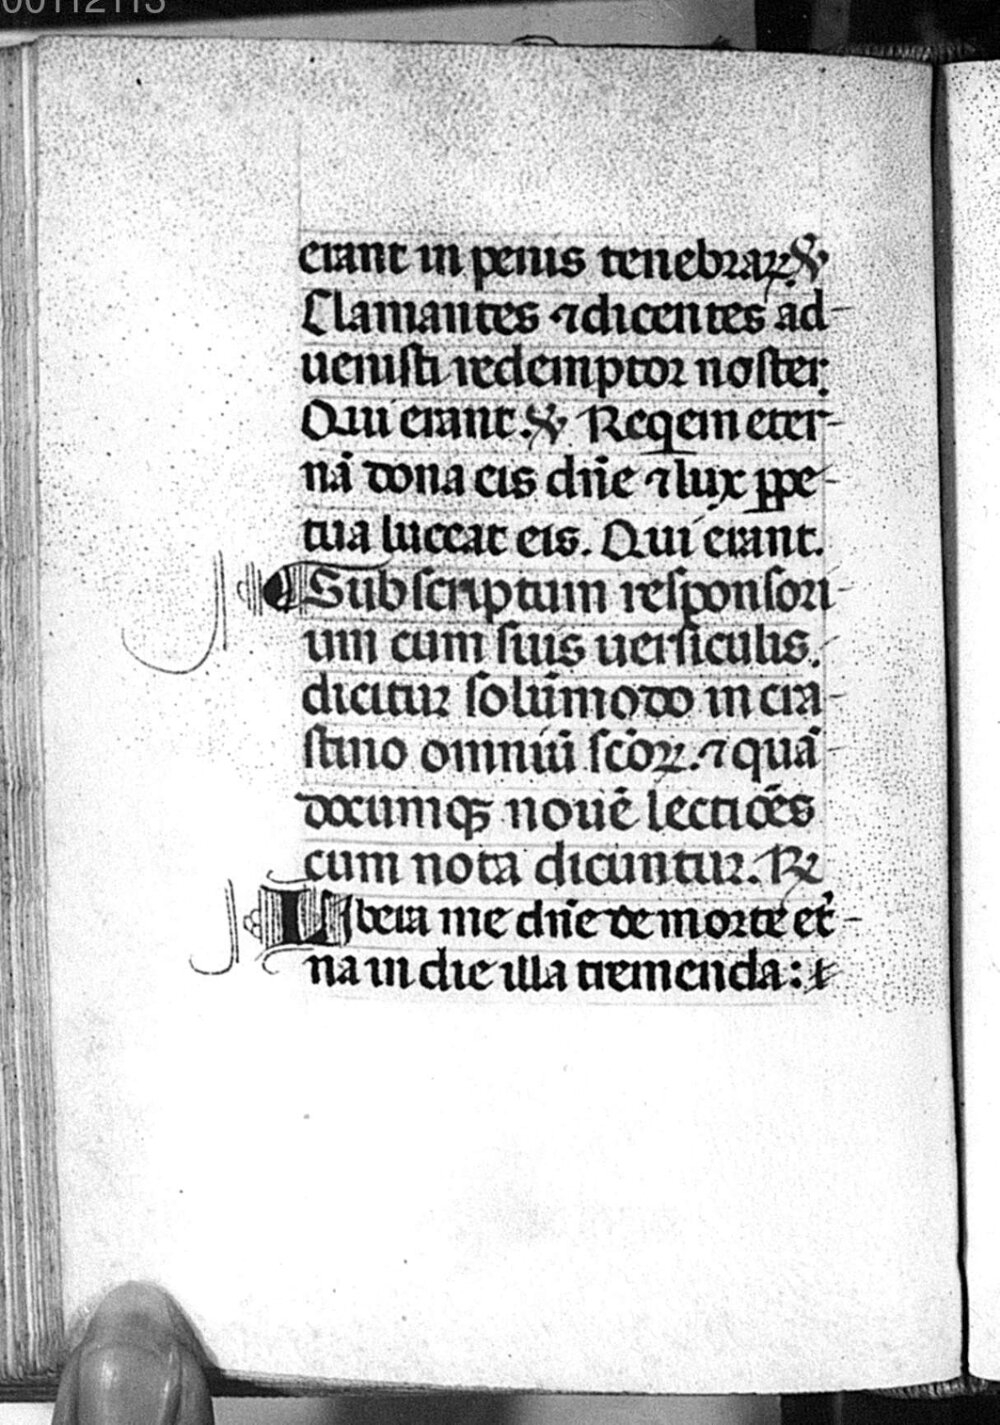 00112113
erant in penis tenebraꝝ. ℣
Clamantes ⁊ dicentes ad-
uenisti redemptor noster.
Qui erant. ℣ Reqem eter-
nā dona eis dn̄e ⁊ lux ꝑpe-
tua luceat eis. Qui erant.
Subscriptum responsori-
um cum suis uersiculis.
dicitur solūmodo in cra-
stino omniū sc̄oꝝ. ⁊ quā-
documqꝫ nouē lectiōēs
cum nota dicuntur. ℟
Libera me dn̄e de morte et̄-
na in die illa tremenda: